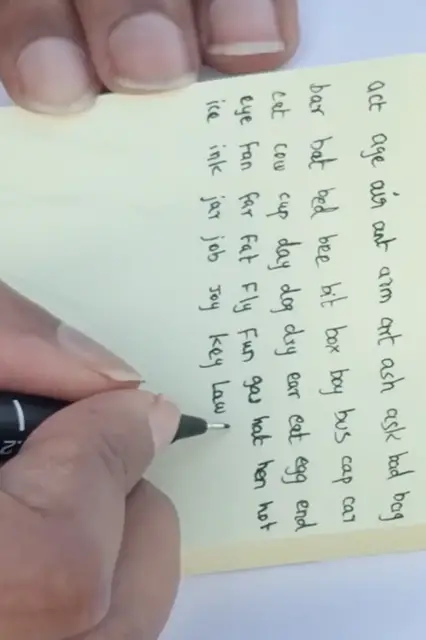 act age air ant arm art ash ask bad bag
bar bat bed bee bit box boy bus cap car
cat cow cup day dog dry ear eat egg end
eye Fan Far Fat Fly Fun gas hat hen hot
ice ink jar job Joy key Law
.2